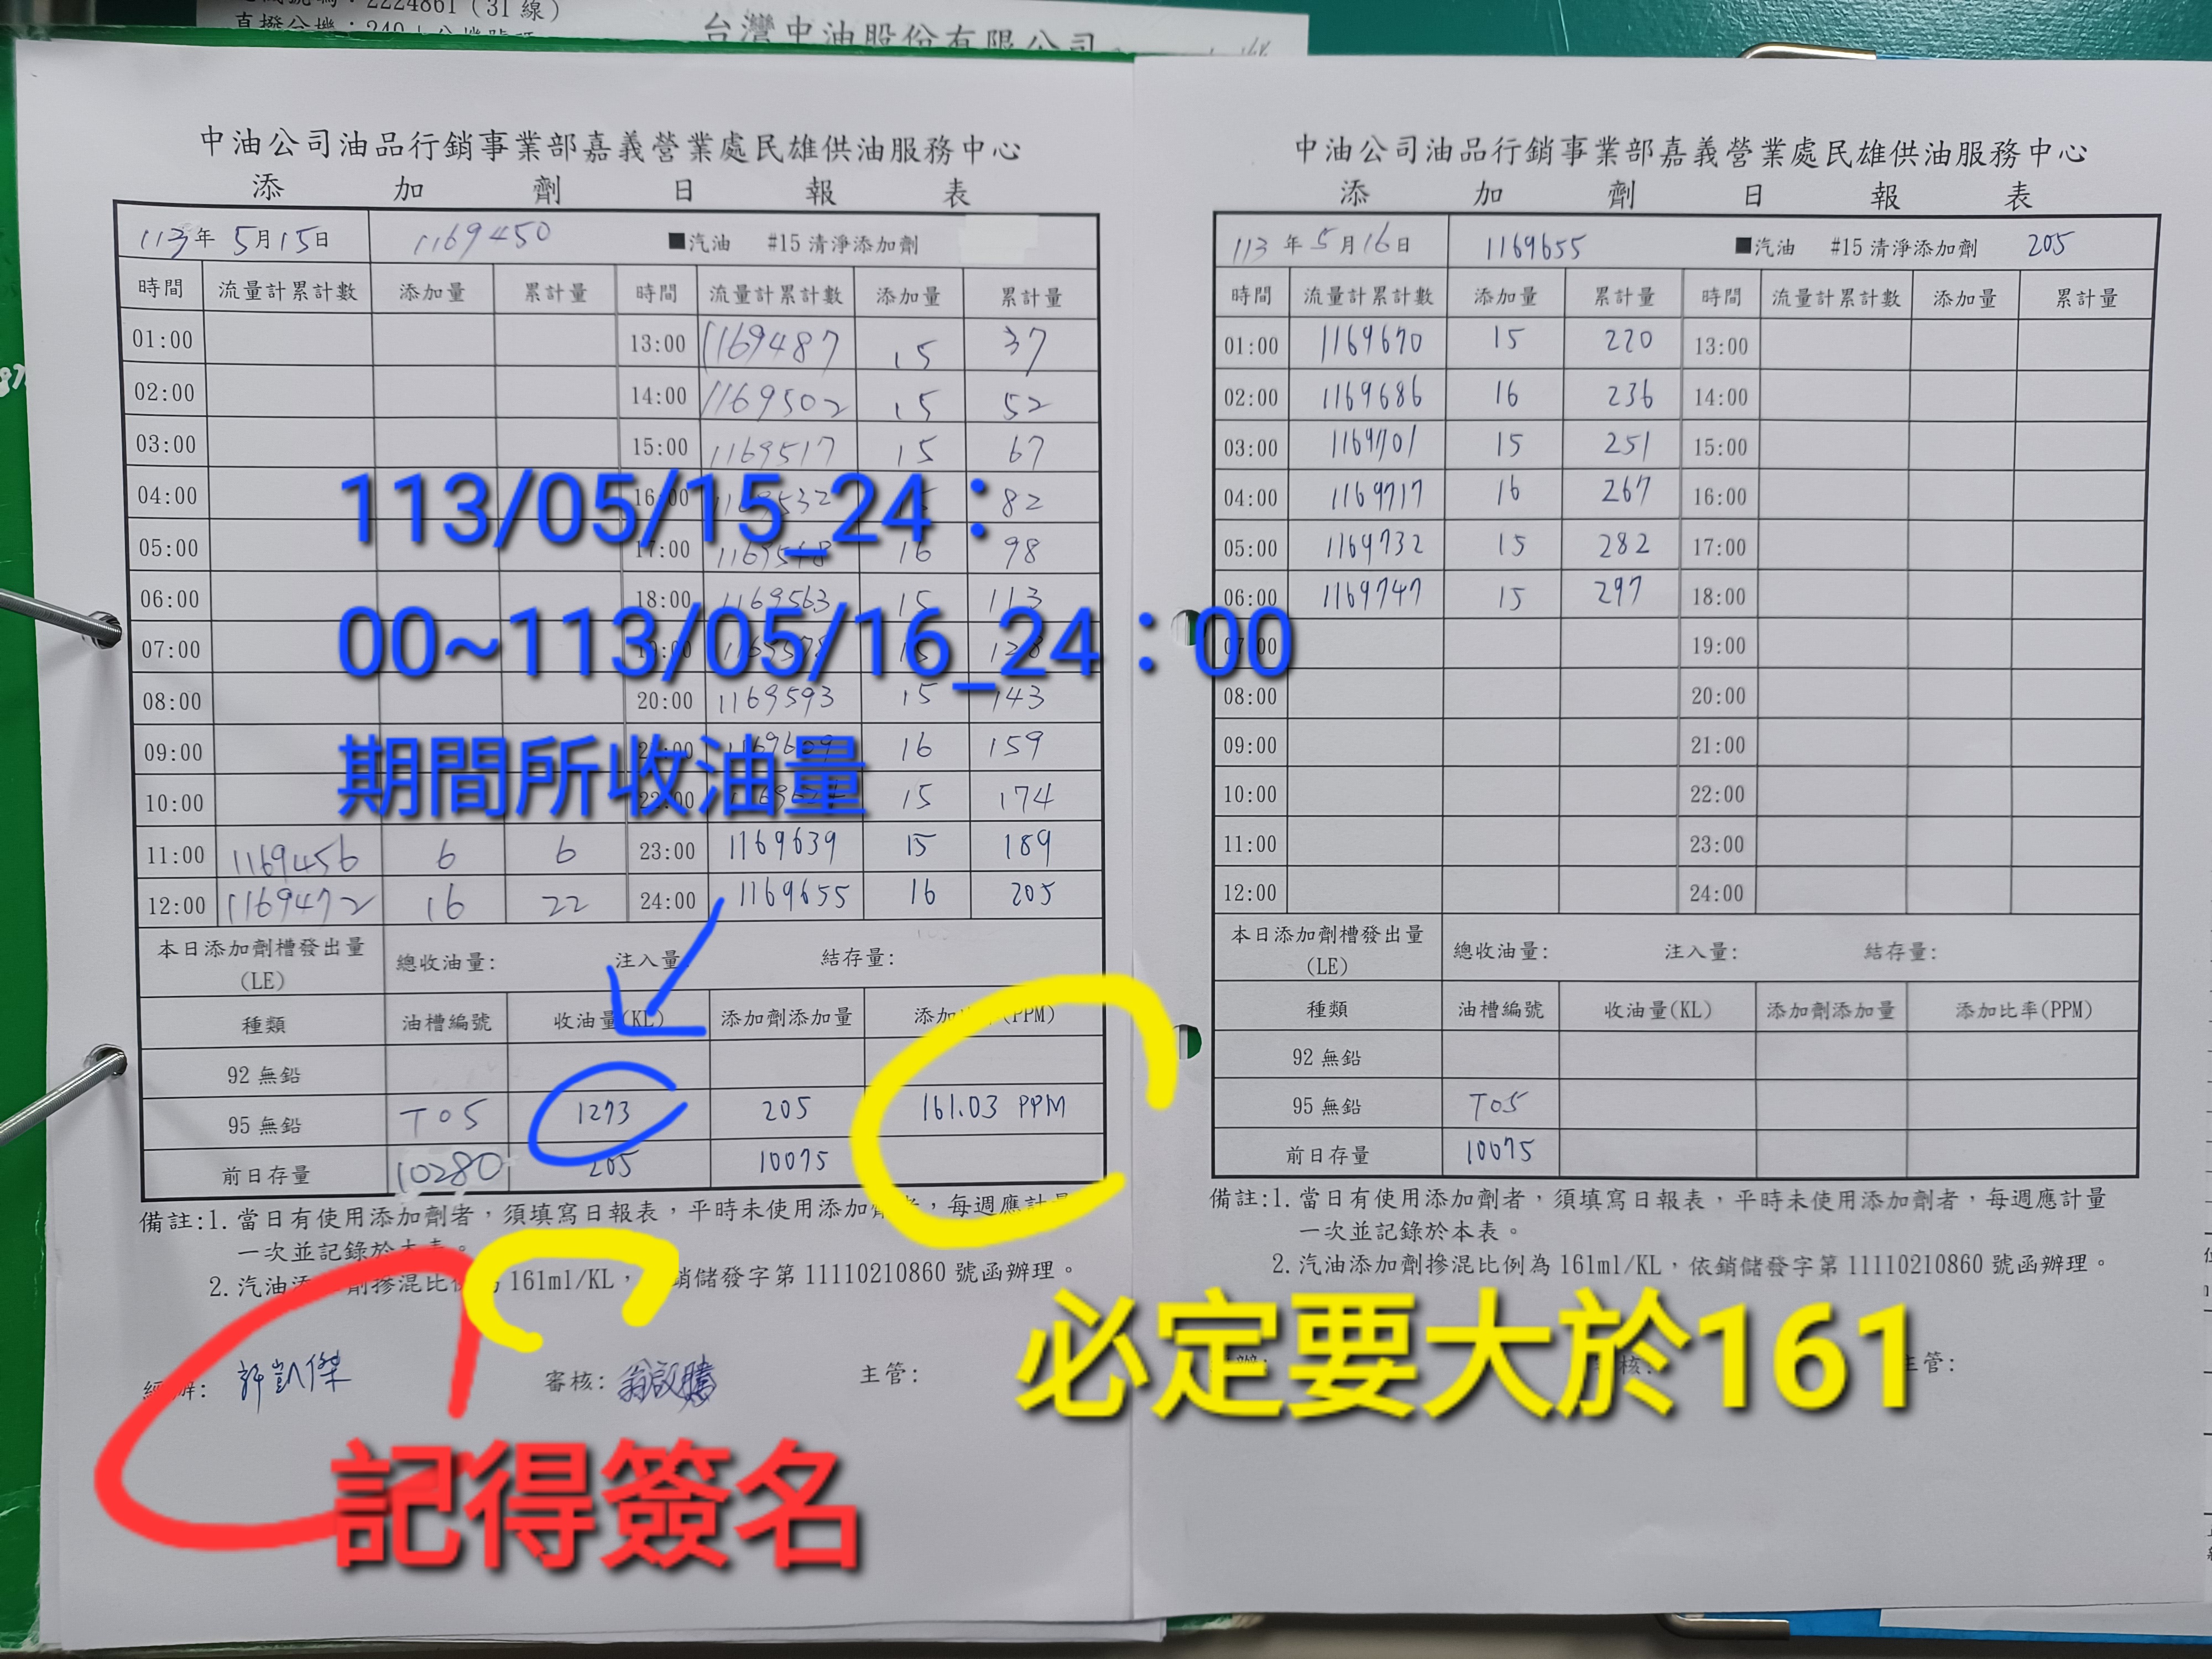 2224861（31線）
台灣中油股份有限公司
中油公司油品行銷事業部嘉義營業處民雄供油服務中心
添加劑日報表
113年5月15日 1169450 ■汽油 #15清淨添加劑
時間 流量計累計數 添加量 累計量 時間 流量計累計數 添加量 累計量
01:00 13:00 1169487 15 37
02:00 14:00 1169502 15 52
03:00 15:00 1169517 15 67
04:00 16:00 82
05:00 17:00 16 98
06:00 18:00 1169563 15 113
07:00 15
08:00 20:00 1169593 15 143
09:00 16 159
10:00 22:00 15 174
11:00 1169456 6 6 23:00 1169639 15 189
12:00 1169472 16 22 24:00 1169655 16 205
本日添加劑槽發出量(LE) 總收油量: 注入量: 結存量:
種類 油槽編號 收油量(KL) 添加劑添加量 (PPM)
92無鉛
95無鉛 T05 1273 205 161.03 PPM
前日存量 10280 205 10075
備註:1.當日有使用添加劑者，須填寫日報表，平時未使用添加劑者，每週應計量
一次並記錄於本表。
2.汽油添加劑摻混比例為161ml/KL，依銷儲發字第11110210860號函辦理。
經辦: 許凱傑 審核: 翁啟騰 主管:
113/05/15_24：
00~113/05/16_24：00
期間所收油量
記得簽名
中油公司油品行銷事業部嘉義營業處民雄供油服務中心
添加劑日報表
113年5月16日 1169655 ■汽油 #15清淨添加劑 205
時間 流量計累計數 添加量 累計量 時間 流量計累計數 添加量 累計量
01:00 1169670 15 220 13:00
02:00 1169686 16 236 14:00
03:00 1169701 15 251 15:00
04:00 1169717 16 267 16:00
05:00 1169732 15 282 17:00
06:00 1169747 15 297 18:00
07:00 19:00
08:00 20:00
09:00 21:00
10:00 22:00
11:00 23:00
12:00 24:00
本日添加劑槽發出量(LE) 總收油量: 注入量: 結存量:
種類 油槽編號 收油量(KL) 添加劑添加量 添加比率(PPM)
92無鉛
95無鉛 T05
前日存量 10075
備註:1.當日有使用添加劑者，須填寫日報表，平時未使用添加劑者，每週應計量
一次並記錄於本表。
2.汽油添加劑摻混比例為161ml/KL，依銷儲發字第11110210860號函辦理。
必定要大於161
主管: